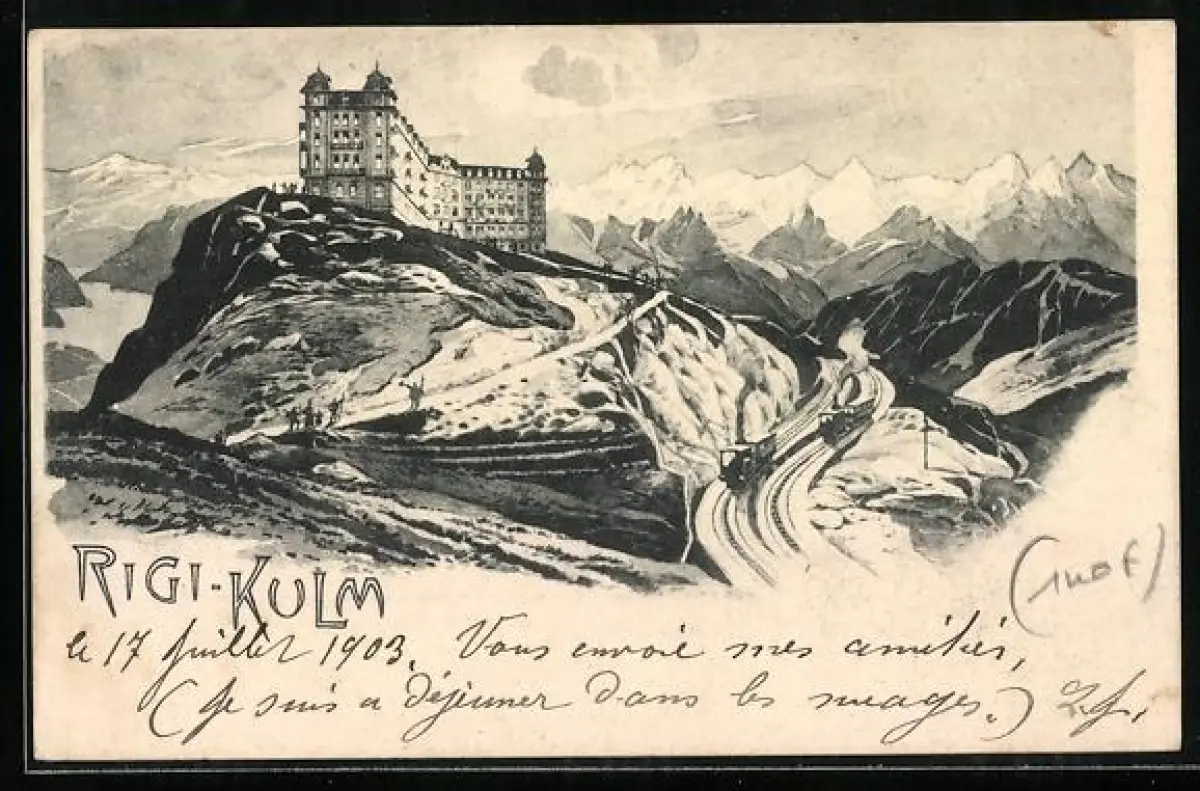 RIGI-KULM
le 17 Juillet 1903. Vous envoie mes amitiés,
(Je suis a déjeuner dans les nuages.)